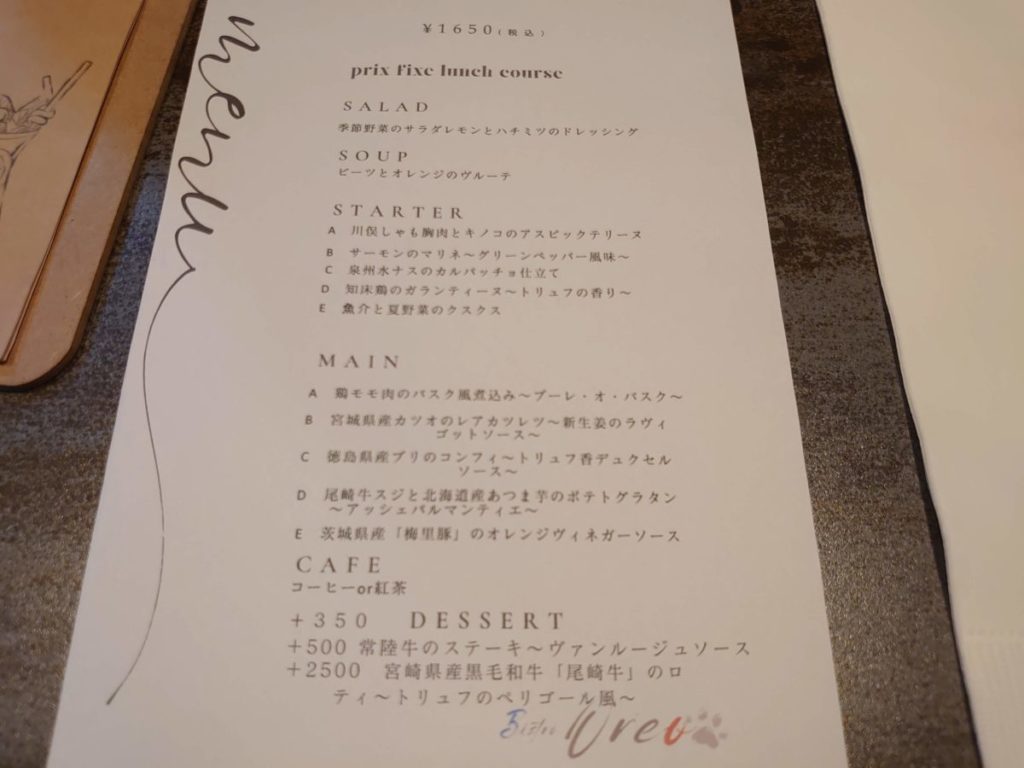 menu
¥1650(税込)
prix fixe lunch course
SALAD
季節野菜のサラダレモンとハチミツのドレッシング
SOUP
ビーツとオレンジのヴルーテ
STARTER
A 川俣しゃも胸肉とキノコのアスピックテリーヌ
B サーモンのマリネ～グリーンペッパー風味～
C 泉州水ナスのカルパッチョ仕立て
D 知床鶏のガランティーヌ～トリュフの香り～
E 魚介と夏野菜のクスクス
MAIN
A 鶏モモ肉のバスク風煮込み～プーレ・オ・バスク～
B 宮城県産カツオのレアカツレツ～新生姜のラヴィ
ゴットソース～
C 徳島県産ブリのコンフィ～トリュフ香デュクセル
ソース～
D 尾崎牛スジと北海道産あつま芋のポテトグラタン
～アッシェパルマンティエ～
E 茨城県産「梅里豚」のオレンジヴィネガーソース
CAFE
コーヒーor紅茶
+350 DESSERT
+500 常陸牛のステーキ～ヴァンルージュソース
+2500 宮崎県産黒毛和牛「尾崎牛」のロ
ティ～トリュフのペリゴール風～
Bistro